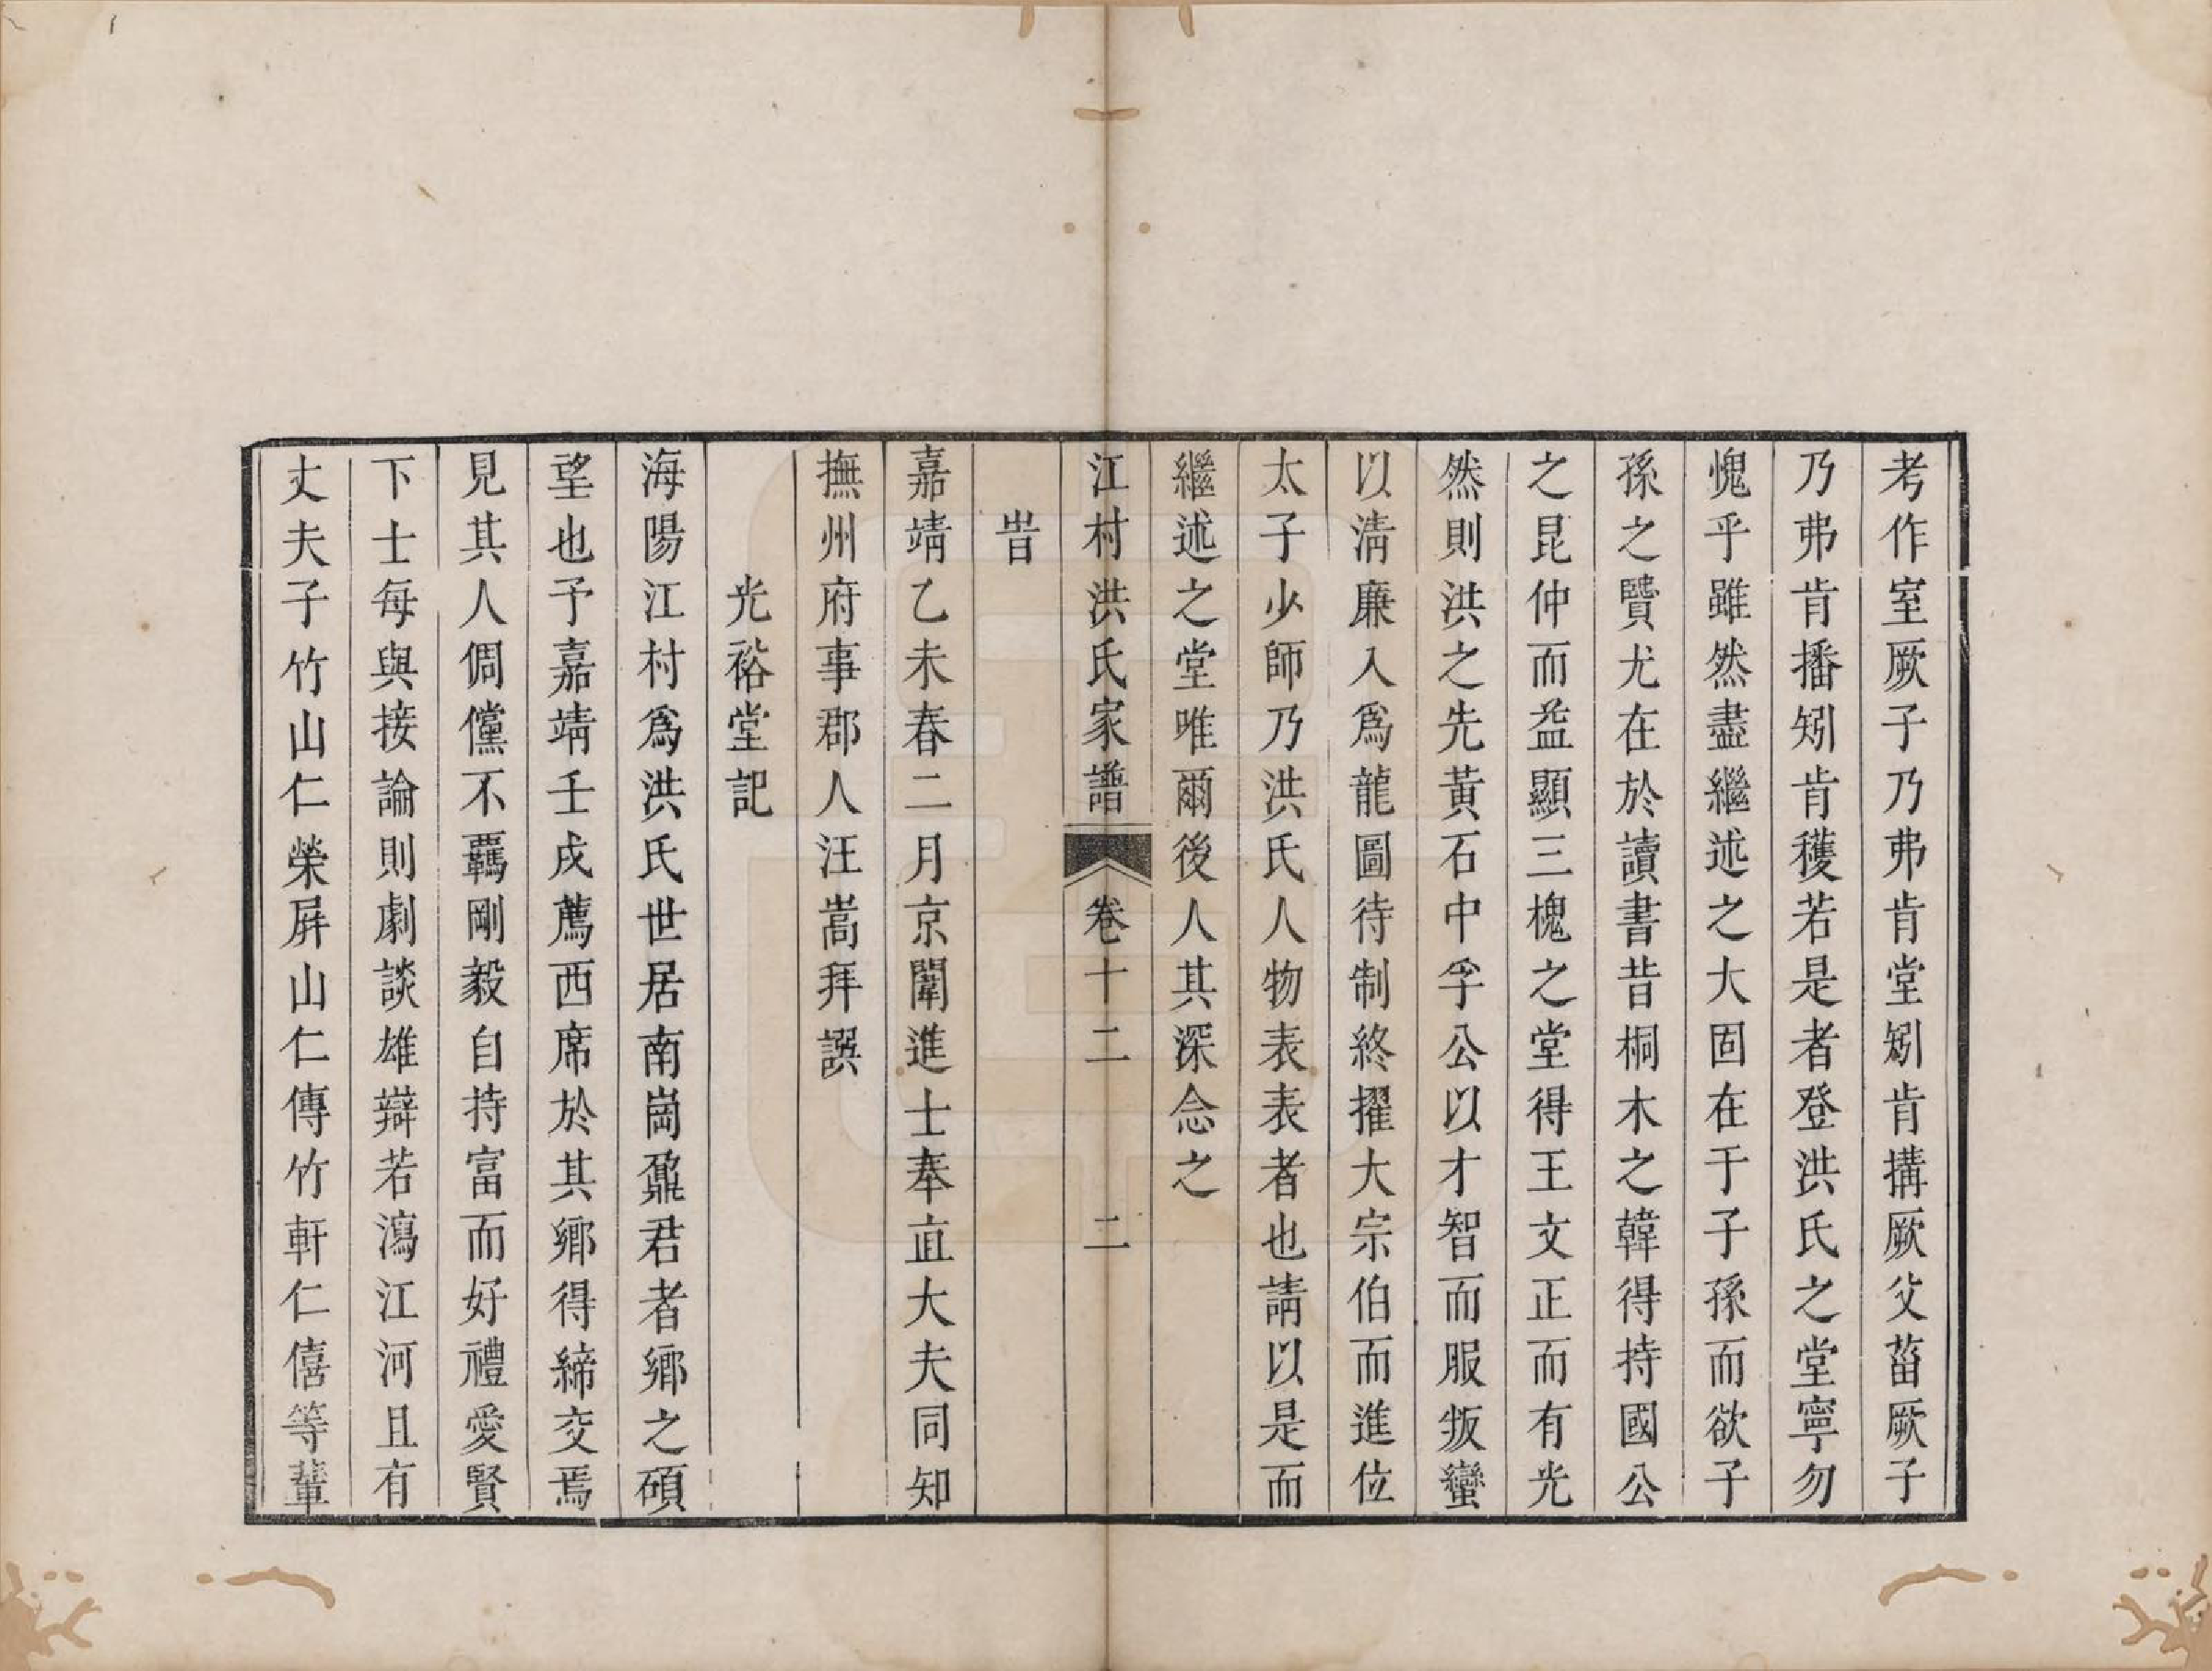 考作室厥子乃弗肯堂矧肯搆厥父菑厥子
乃弗肯播矧肯穫若是者登洪氏之堂寧勿
愧乎雖然盡繼述之大固在于子孫而欲子
孫之賢尤在於讀書昔桐木之韓得持國公
之昆仲而益顯三槐之堂得王文正而有光
然則洪之先黃石中孚公以才智而服叛蠻
以清廉入爲龍圖待制終擢大宗伯而進位
太子少師乃洪氏人物表表者也請以是而
繼述之堂唯爾後人其深念之
江村洪氏家譜 卷十二 二
旹
嘉靖乙未春二月京闈進士奉直大夫同知
撫州府事郡人汪嵩拜譔
光裕堂記
海陽江村爲洪氏世居南崗鼐君者鄉之碩
望也予嘉靖壬戌薦西席於其鄉得締交焉
見其人倜儻不羈剛毅自持富而好禮愛賢
下士每與接論則劇談雄辯若瀉江河且有
丈夫子竹山仁榮屏山仁傳竹軒仁僖等輩